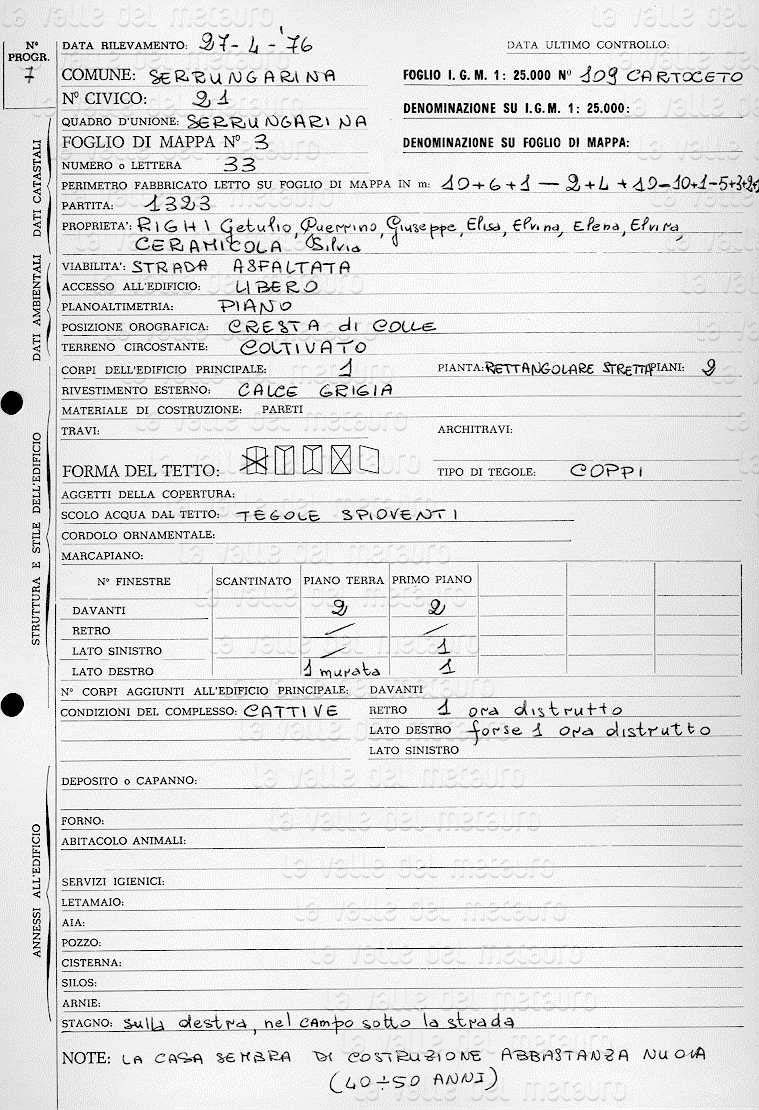 N° PROGR. 7
DATA RILEVAMENTO: 27-4-'76 DATA ULTIMO CONTROLLO:
COMUNE: SERRUNGARINA FOGLIO I. G. M. 1: 25.000 N° 109 CARTOCETO
N° CIVICO: 21 DENOMINAZIONE SU I. G. M. 1: 25.000:
QUADRO D'UNIONE: SERRUNGARINA
FOGLIO DI MAPPA N° 3 DENOMINAZIONE SU FOGLIO DI MAPPA:
NUMERO o LETTERA 33
PERIMETRO FABBRICATO LETTO SU FOGLIO DI MAPPA IN m: 10+6+1-2+4+10-10+1-5+3+2+
PARTITA: 1323
PROPRIETA': RIGHI Getulio, Guerrino, Giuseppe, Elisa, Elvina, Elena, Elvira,
CERAMICOLA Silvia
VIABILITA': STRADA ASFALTATA
ACCESSO ALL'EDIFICIO: LIBERO
PLANOALTIMETRIA: PIANO
POSIZIONE OROGRAFICA: CRESTA di COLLE
TERRENO CIRCOSTANTE: COLTIVATO
CORPI DELL'EDIFICIO PRINCIPALE: 1 PIANTA: RETTANGOLARE STRETTA PIANI: 2
RIVESTIMENTO ESTERNO: CALCE GRIGIA
MATERIALE DI COSTRUZIONE: PARETI
TRAVI: ARCHITRAVI:
FORMA DEL TETTO: TIPO DI TEGOLE: COPPI
AGGETTI DELLA COPERTURA:
SCOLO ACQUA DAL TETTO: TEGOLE SPIOVENTI
CORDOLO ORNAMENTALE:
MARCAPIANO:
N° FINESTRE SCANTINATO PIANO TERRA PRIMO PIANO
DAVANTI 2 2
RETRO / /
LATO SINISTRO / 1
LATO DESTRO 1 murata 1
N° CORPI AGGIUNTI ALL'EDIFICIO PRINCIPALE: DAVANTI
CONDIZIONI DEL COMPLESSO: CATTIVE RETRO 1 ora distrutto
LATO DESTRO forse 1 ora distrutto
LATO SINISTRO
DEPOSITO o CAPANNO:
FORNO:
ABITACOLO ANIMALI:
SERVIZI IGIENICI:
LETAMAIO:
AIA:
POZZO:
CISTERNA:
SILOS:
ARNIE:
STAGNO: sulla destra, nel campo sotto la strada
NOTE: LA CASA SEMBRA DI COSTRUZIONE ABBASTANZA NUOVA
(40÷50 ANNI)
DATI CATASTALI
DATI AMBIENTALI
STRUTTURA E STILE DELL'EDIFICIO
ANNESSI ALL'EDIFICIO
la valle del metauro